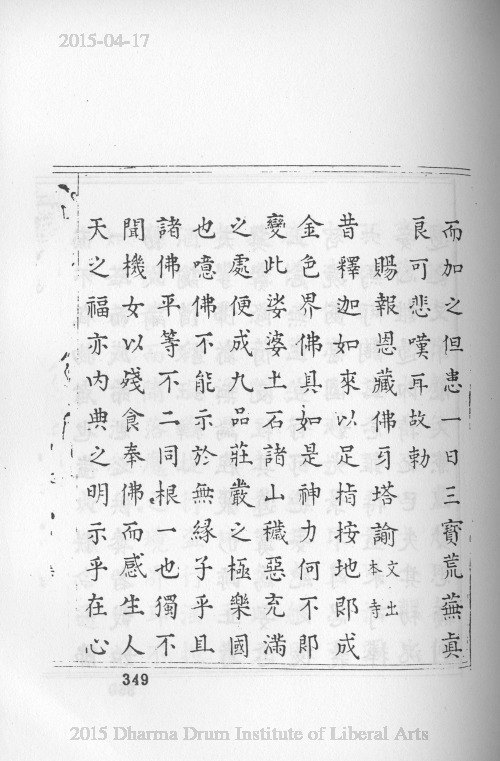 2015-04-17
而加之但恚一日三寳荒蕪眞
良可悲嘆耳故勅
賜報恩藏佛牙塔諭文出本寺
昔釋迦如來以足指按地卽成
金色界佛具如是神力何不卽
變此娑婆土石諸山穢惡充滿
之處便成九品莊嚴之極樂國
也噫佛不能示於無緣子乎且
諸佛平等不二同根一也獨不
聞機女以殘食奉佛而感生人
天之福亦內典之明示乎在心
349
2015 Dharma Drum Institute of Liberal Arts